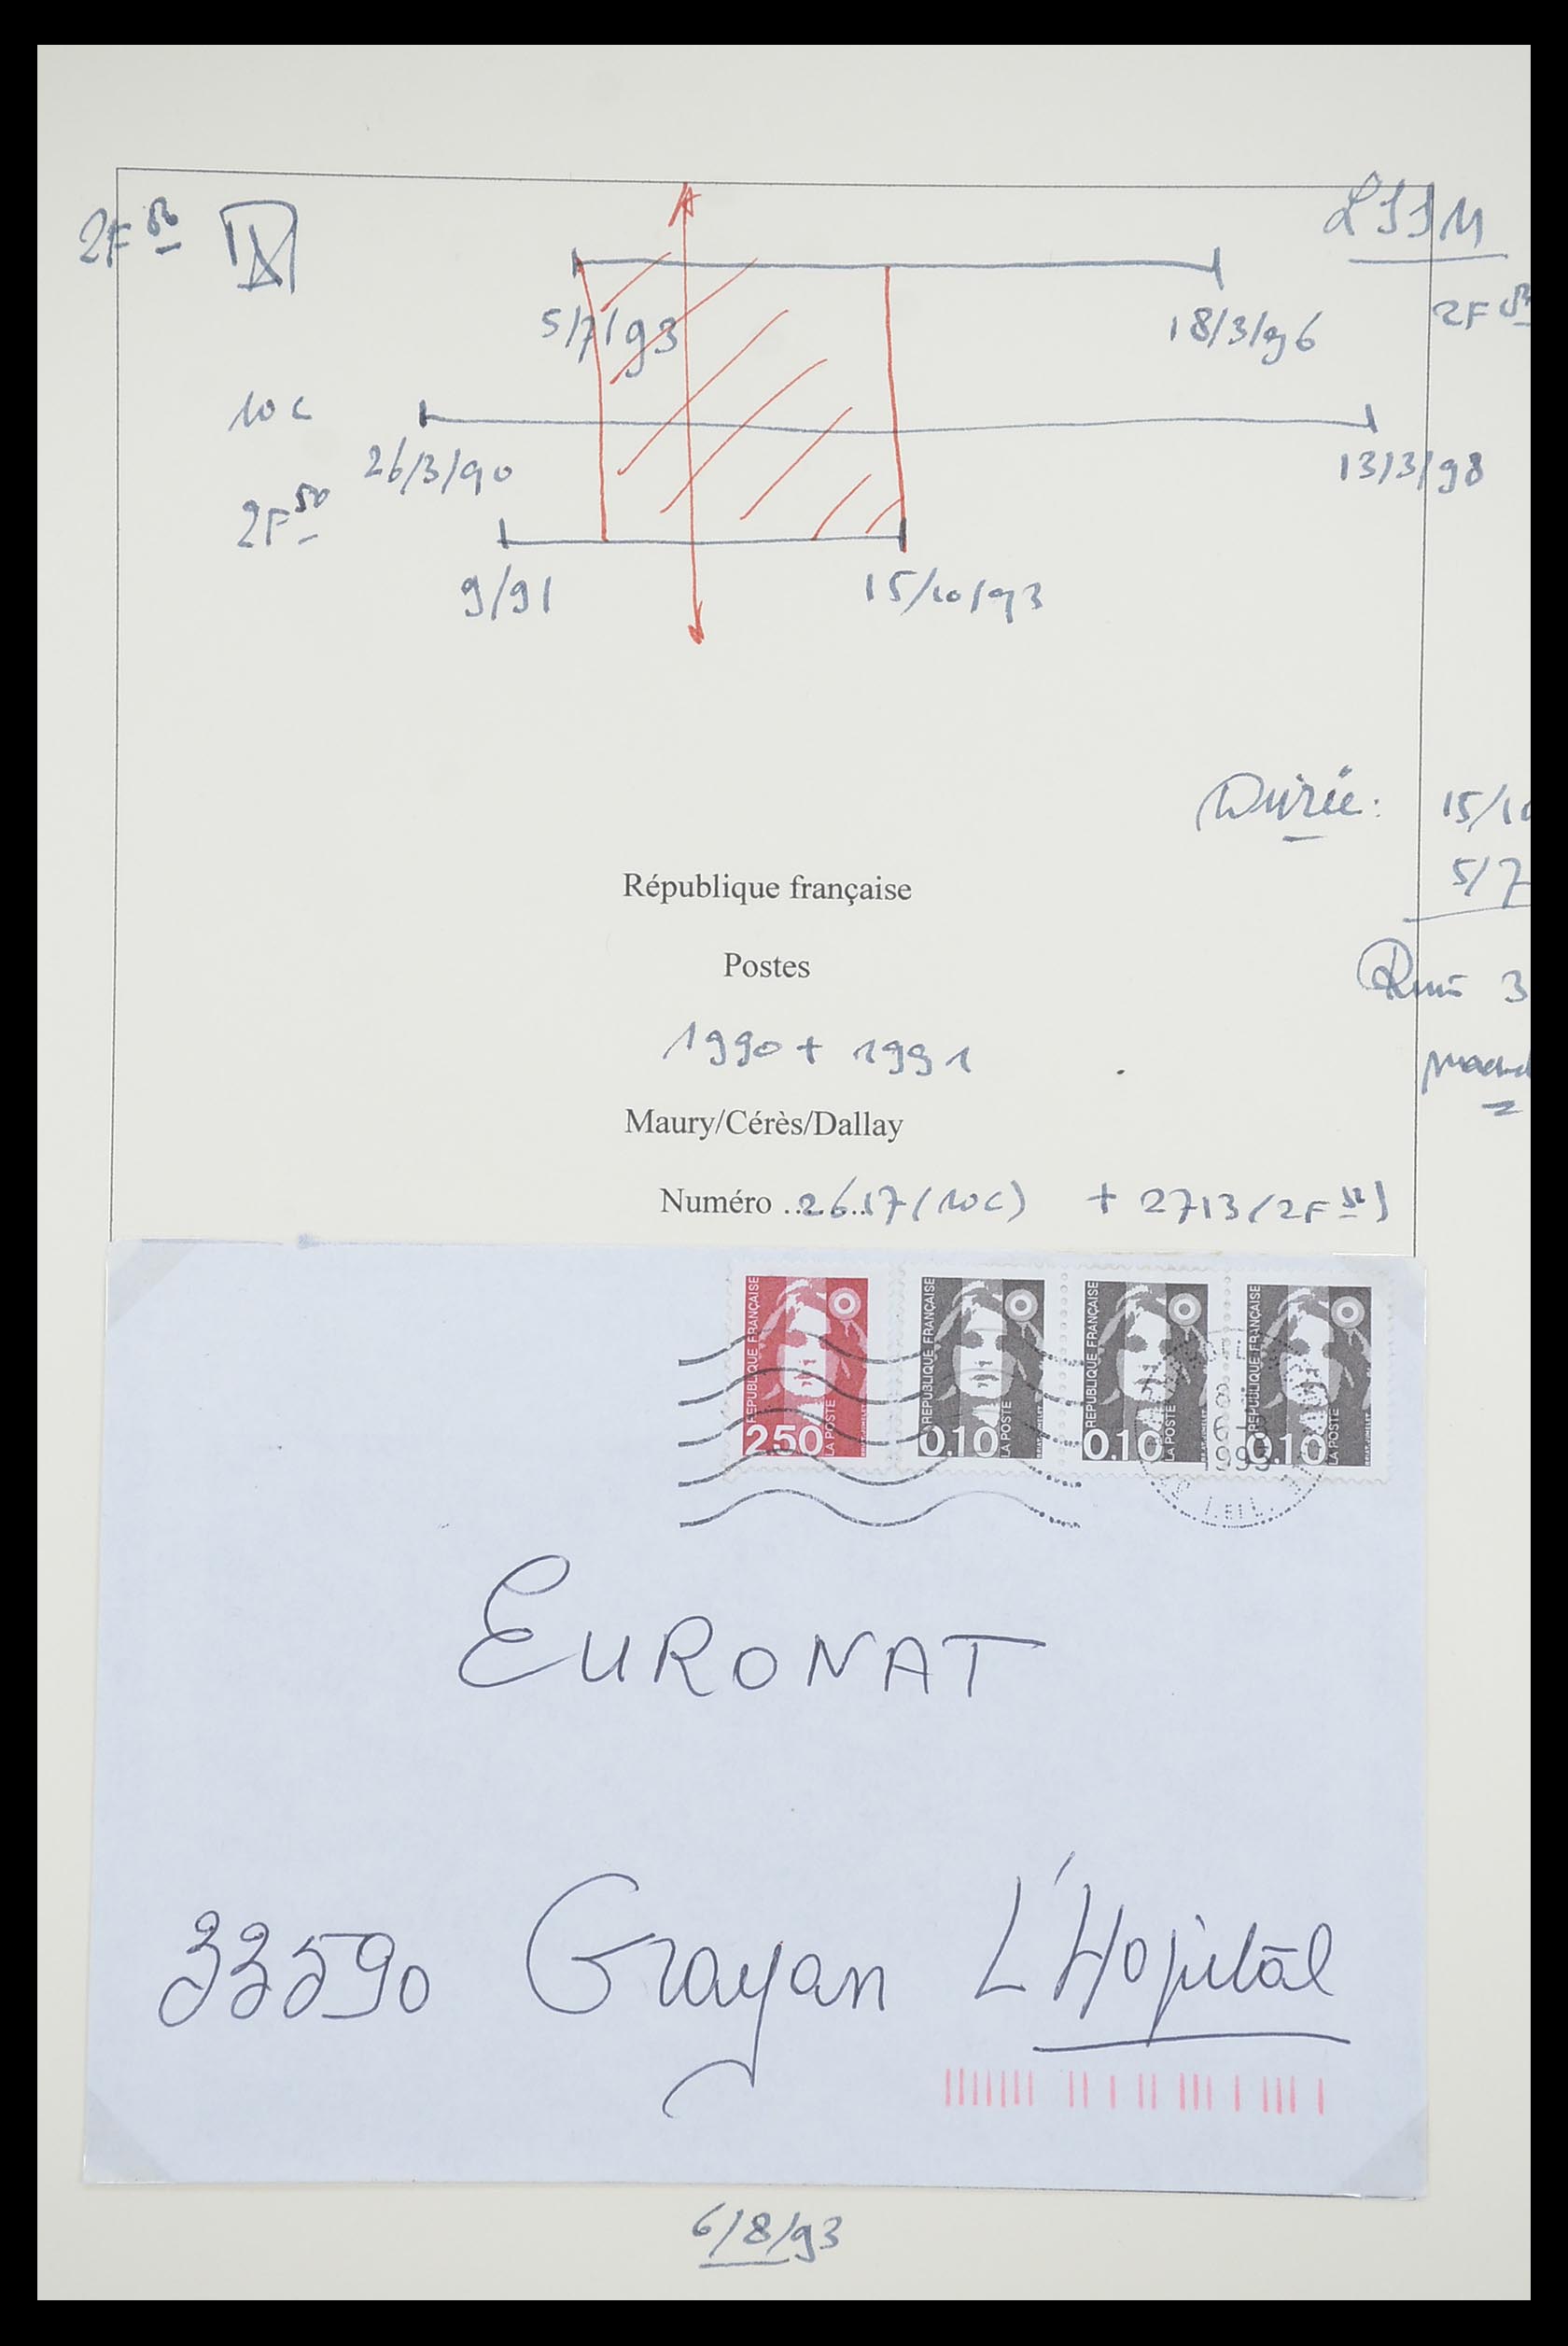 2F
5/7/93
18/3/96
2F
10 c
26/3/90
13/3/98
2F50
9/91
15/10/93
Durée:
5/7
République française
Postes
1990 + 1991
Maury/Cérès/Dallay
Numéro ......... 2617 (10c) + 2713 (2F
RÉPUBLIQUE FRANÇAISE 2,50 LA POSTE
RÉPUBLIQUE FRANÇAISE 0,10 LA POSTE
RÉPUBLIQUE FRANÇAISE 0,10 LA POSTE
RÉPUBLIQUE FRANÇAISE 0,10 LA POSTE
1993
EURONAT
33590 Grayan L'Hopitâl
6/8/93